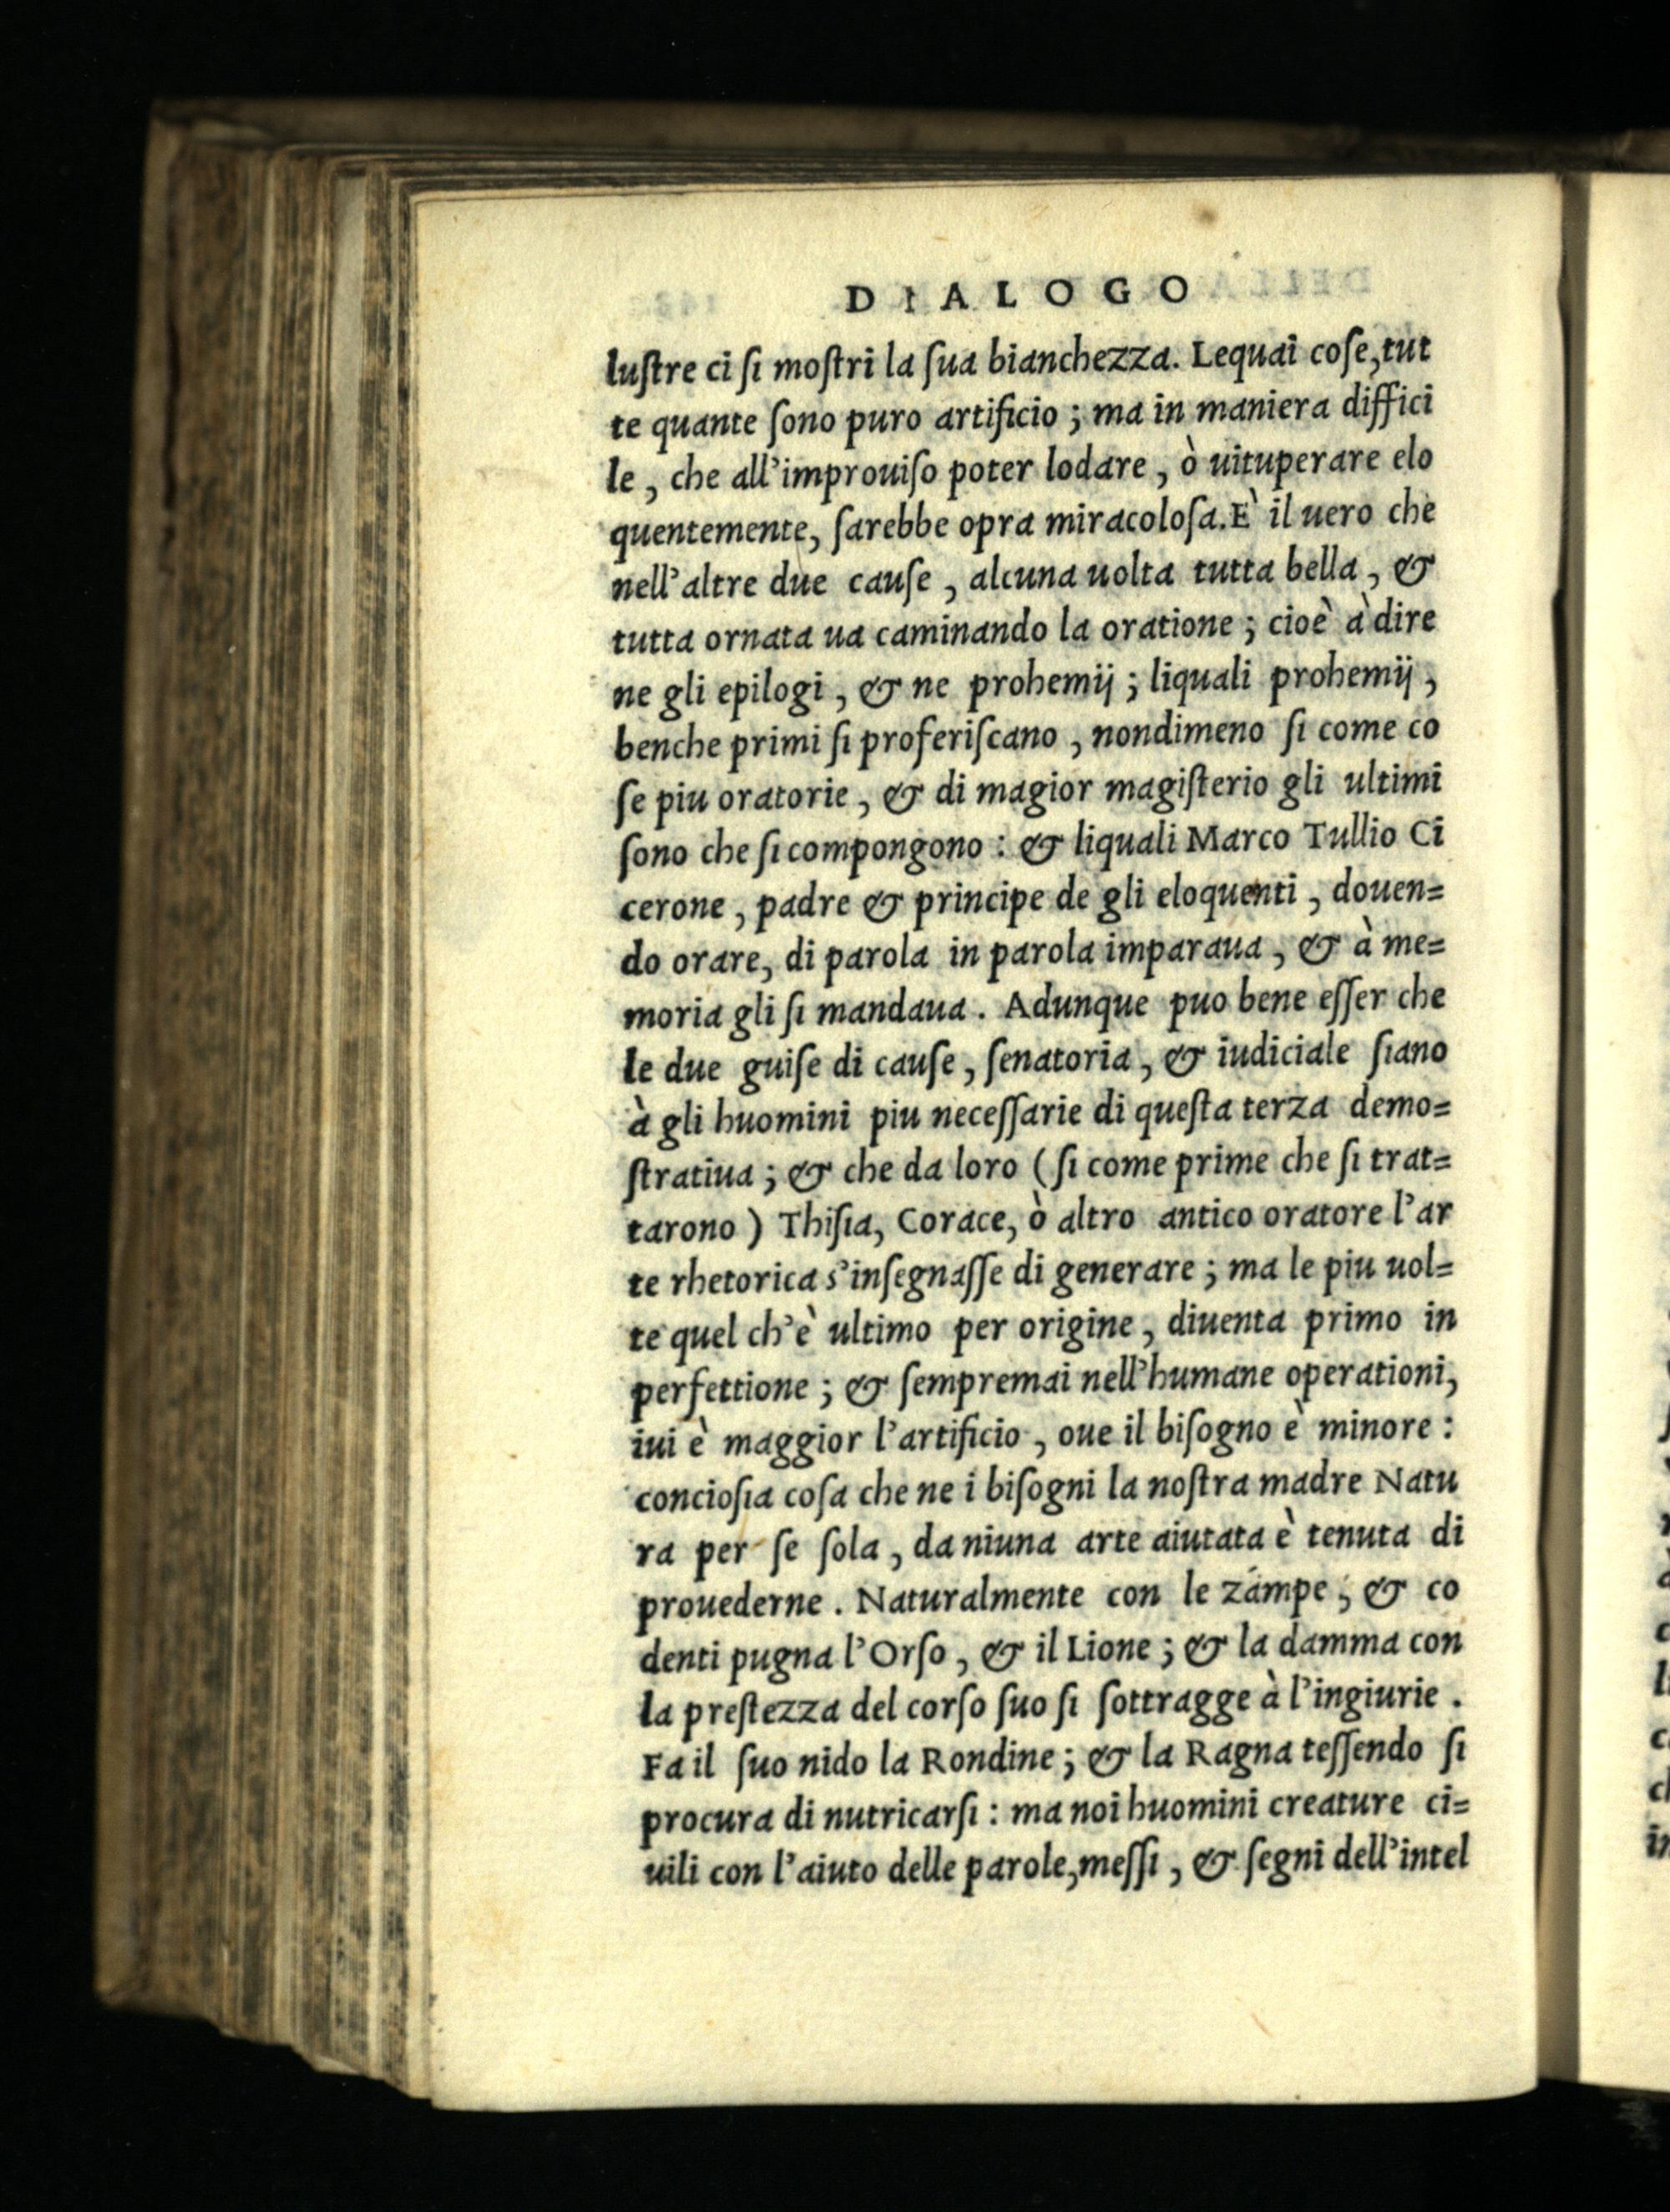 DIALOGO
luſtre ci ſi moſtri la ſua bianchezza. Lequai coſe, tut
te quante ſono puro artificio ; ma in maniera diffici
le , che all'improuiſo poter lodare , ò uituperare elo
quentemente, ſarebbe opra miracoloſa. E` il uero che
nell'altre due cauſe , alcuna uolta tutta bella , &
tutta ornata ua caminando la oratione ; cioè à dire
ne gli epilogi , & ne prohemij ; liquali prohemij ,
benche primi ſi proferiſcano , nondimeno ſi come co
ſe piu oratorie , & di magior magiſterio gli ultimi
ſono che ſi compongono : & liquali Marco Tullio Ci
cerone , padre & principe de gli eloquenti , douen=
do orare, di parola in parola imparaua , & à me=
moria gli ſi mandaua . Adunque puo bene eſſer che
le due guiſe di cauſe , ſenatoria , & iudiciale ſiano
à gli huomini piu neceſſarie di queſta terza demo=
ſtratiua ; & che da loro ( ſi come prime che ſi trat=
tarono ) Thiſia, Corace, ò altro antico oratore l'ar
te rhetorica s'inſegnaſſe di generare ; ma le piu uol=
te quel ch'è ultimo per origine , diuenta primo in
perfettione ; & ſempremai nell'humane operationi,
iui è maggior l'artificio , oue il biſogno è minore :
concioſia coſa che ne i biſogni la noſtra madre Natu
ra per ſe ſola , da niuna arte aiutata è tenuta di
prouederne . Naturalmente con le zampe , & co
denti pugna l'Orſo , & il Lione ; & la damma con
la preſtezza del corſo ſuo ſi ſottragge à l'ingiurie .
Fa il ſuo nido la Rondine ; & la Ragna teſſendo ſi
procura di nutricarſi : ma noi huomini creature ci=
uili con l'aiuto delle parole, meſſi , & ſegni dell'intel